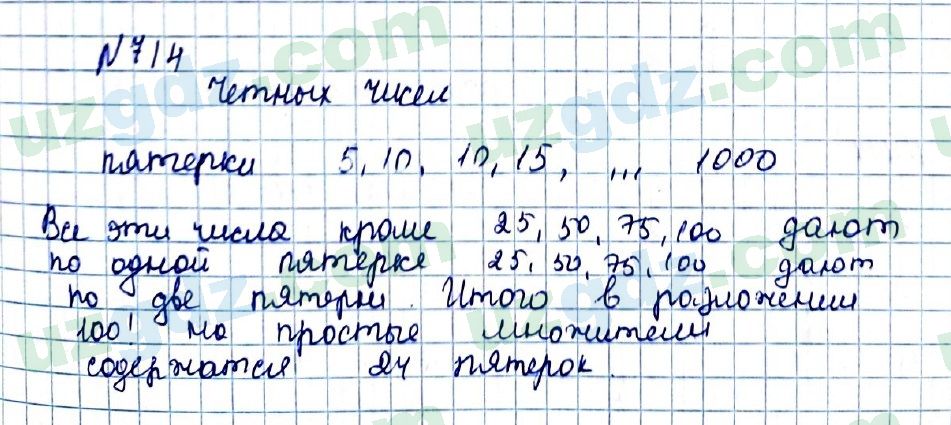 N714
Четных чисел
пятерки 5, 10, 10, 15, ,,, 1000
Все эти числа кроме 25, 50, 75, 100 дают
по одной пятерке 25, 50, 75, 100 дают
по две пятерки. Итого в разложении
100! на простые множители
содержатся 24 пятерок.
uzgdz.com
uzgdz.com
uzgdz.com
uzgdz.com
uzgdz.com
uzgdz.com